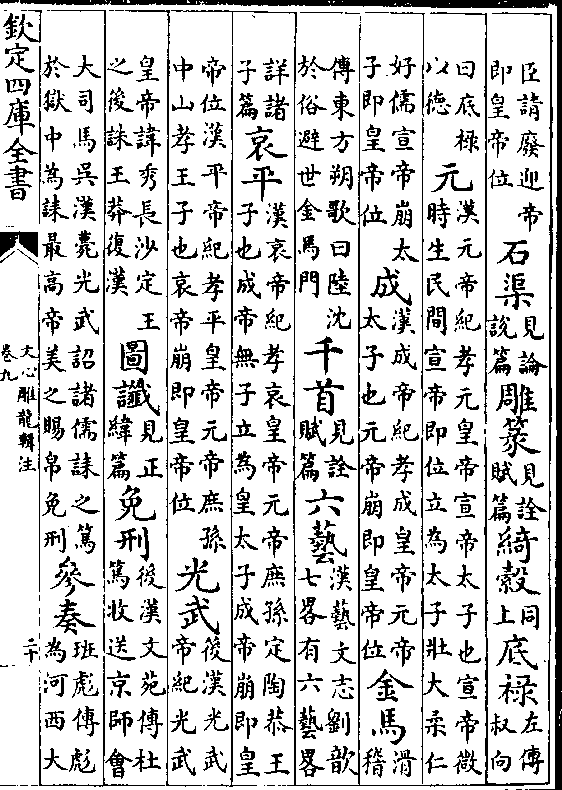 臣請廢迎帝即皇帝位 石渠見論說篇 雕篆見詮賦篇 綺縠同上 底祿左傳叔向
曰底祿以德 元漢元帝紀孝元皇帝宣帝太子也宣帝微時生民間宣帝即位立為太子壯大柔仁
好儒宣帝崩太子即皇帝位 成漢成帝紀孝成皇帝元帝太子也元帝崩即皇帝位 金馬滑稽
傳東方朔歌曰陸沈於俗避世金馬門 千首見詮賦篇 六藝漢藝文志劉歆七畧有六藝畧
詳諸子篇 哀平漢哀帝紀孝哀皇帝元帝庶孫定陶恭王子也成帝無子立為皇太子成帝崩即皇
帝位漢平帝紀孝平皇帝元帝庶孫中山孝王子也哀帝崩即皇帝位 光武後漢光武帝紀光武
皇帝諱秀長沙定王之後誅王莽復漢 圖讖見正緯篇 免刑後漢文苑傳杜篤收送京師會
大司馬吳漢薨光武詔諸儒誄之篤於獄中為誄最高帝美之賜帛免刑 參奏班彪傳彪為河西大
欽定四庫全書
文心雕龍輯注
卷九
二十